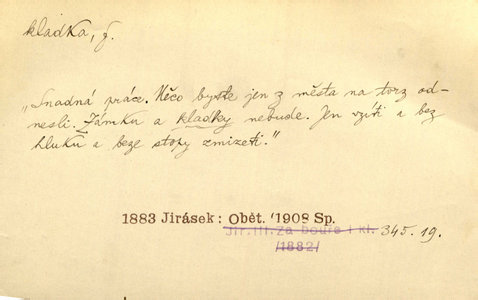 kladka, f.
„Snadná práce. Něco byste jen z města na torz od-
nesli. Zámku a kladky nebude. Jen vzíti a bez
hluku a beze stopy zmizeti."
1883 Jirásek: Obět. /1908 Sp.
Jir.III.Za bouře i kl. 345.19.
/1882/